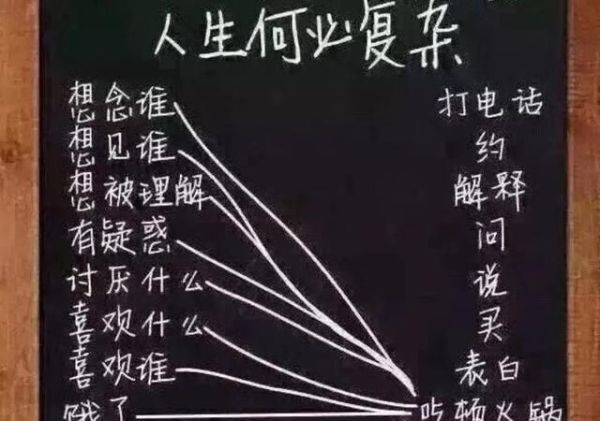 人生何必复杂
想念谁 打电话
想见谁 约
想被理解 解释
有疑惑 问
讨厌什么 说
喜欢什么 买
喜欢谁 表白
饿了 吃顿火锅